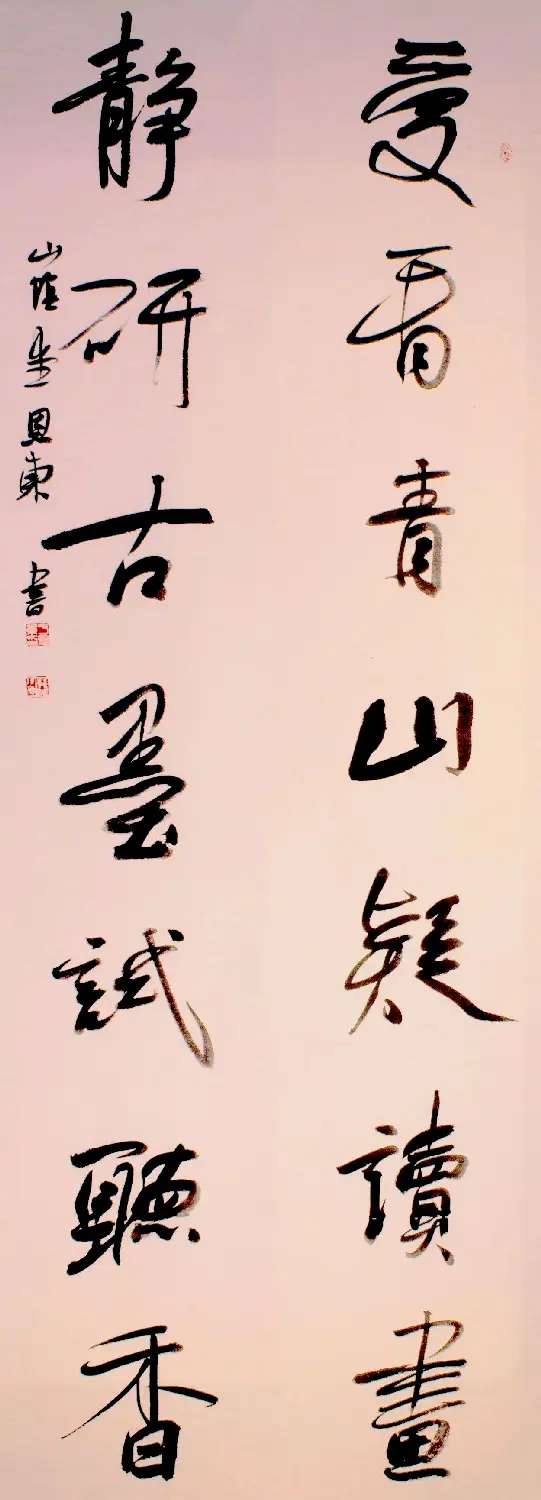 愛看青山疑讀畫
靜研古墨試聽香
山陰朱恩東書